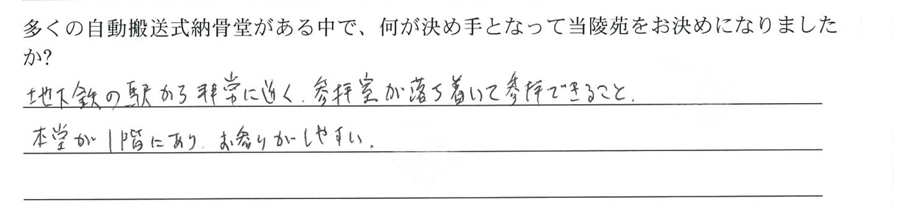 多くの自動搬送式納骨堂がある中で、何が決め手となって当陵苑をお決めになりました
か?
地下鉄の駅から非常に近く、参拝室が落ち着いて参拝できること。
本堂が1階にあり、お参りがしやすい。